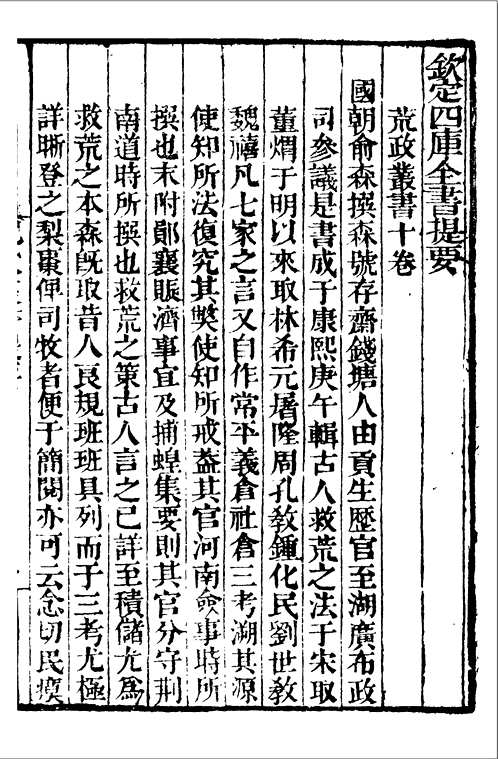 欽定四庫全書提要
荒政叢書十卷
國朝俞森撰森號存齋錢塘人由貢生歷官至湖廣布政
司參議是書成于康熙庚午輯古人救荒之法于宋取
董煟于明以來取林希元屠隆周孔敎鍾化民劉世敎
魏禧凡七家之言又自作常平義倉社倉三考溯其源
使知所法復究其獘使知所戒葢其官河南僉事時所
撰也末附鄖襄賑濟事宜及捕蝗集要則其官分守荆
南道時所撰也救荒之策古人言之已詳至積儲尤爲
救荒之本森旣取昔人良規班班具列而于三考尤極
詳晰登之梨棗俾司牧者便于簡閱亦可云念切民瘼